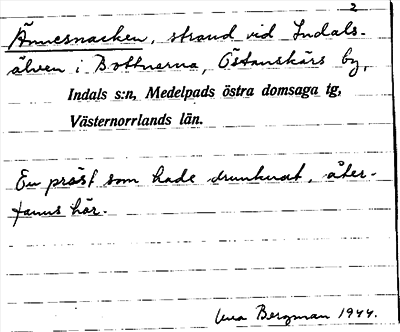 2
Ännesnacken, strand vid Indals-
älven i Bottnarna, Östanskärs by,
Indals s:n, Medelpads östra domsaga tg,
Västernorrlands län.
En präst som hade drunknat, åter-
fanns här.
Bergman 1944.